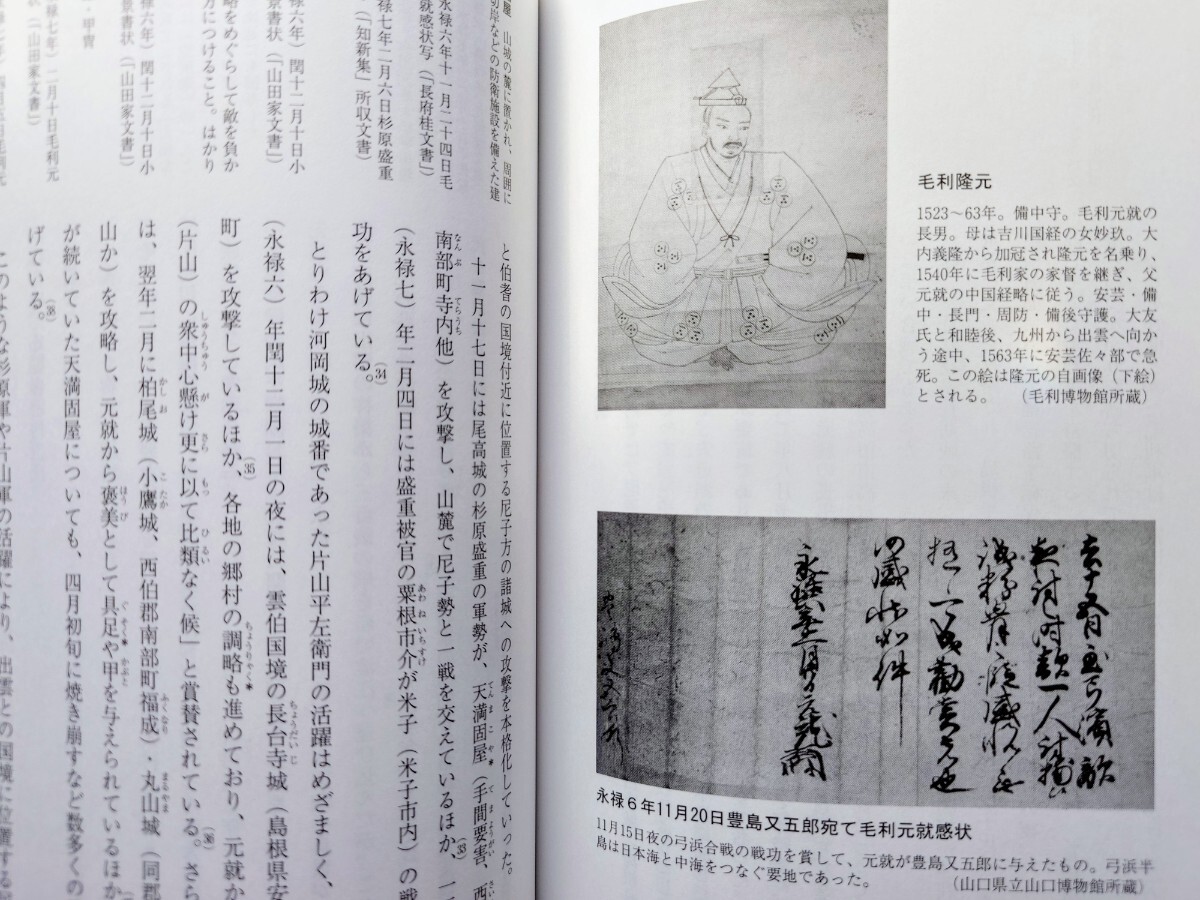 毛利隆元
1523〜63年。備中守。毛利元就の
長男。母は吉川国経の女妙玖。大
内義隆から加冠され隆元を名乗り、
1540年に毛利家の家督を継ぎ、父
元就の中国経略に従う。安芸・備
中・長門・周防・備後守護。大友
氏と和睦後、九州から出雲へ向か
う途中、1563年に安芸佐々部で急
死。この絵は隆元の自画像（下絵）
とされる。　（毛利博物館所蔵）
永禄6年11月20日豊島又五郎宛て毛利元就感状
11月15日夜の弓浜合戦の戦功を賞して、元就が豊島又五郎に与えたもの。弓浜半
島は日本海と中海をつなぐ要地であった。　（山口県立山口博物館所蔵）
屋　山城の麓に置かれ、周囲に
切岸などの防衛施設を備えた建
永禄六年十一月二十四日毛
就感状写（「長府桂文書」）
禄七年二月六日杉原盛重
（「知新集」所収文書）
永禄六年）閏十二月十日小
景書状（「山田家文書」）
略をめぐらして敵を負か
方につけること。はかり
禄六年）閏十二月十日小
景書状（「山田家文書」）
・甲冑
禄七年）二月十日毛利元
状（「山田家文書」）
と伯耆の国境付近に位置する尼子方の諸城への攻撃を本格化していった。
十一月十七日には尾高城の杉原盛重の軍勢が、天満固屋*（手間要害、西
南部町寺内他）を攻撃し、山麓で尼子勢と一戦を交えているほか、(33)
（永禄七）年二月四日には盛重被官の粟根市介が米子（米子市内）の戦
功をあげている。(34)
とりわけ河岡城の城番であった片山平左衛門の活躍はめざましく、
（永禄六）年閏十二月一日の夜には、雲伯国境の長台寺城（島根県安
町）を攻撃しているほか、(35)各地の郷村の調略*も進めており、元就か
（片山）の衆中心懸け更に以て比類なく候」と賞賛されている。(36)さら
は、翌年二月に柏尾城（小鷹城、西伯郡南部町福成）・丸山城（同郡
山か）を攻略し、元就から褒美として具足*や甲を与えられているほか
が続いていた天満固屋についても、四月初旬に焼き崩すなど数多くの
げている。(38)
このような杉原軍や片山軍の活躍により、出雲との国境に位置する